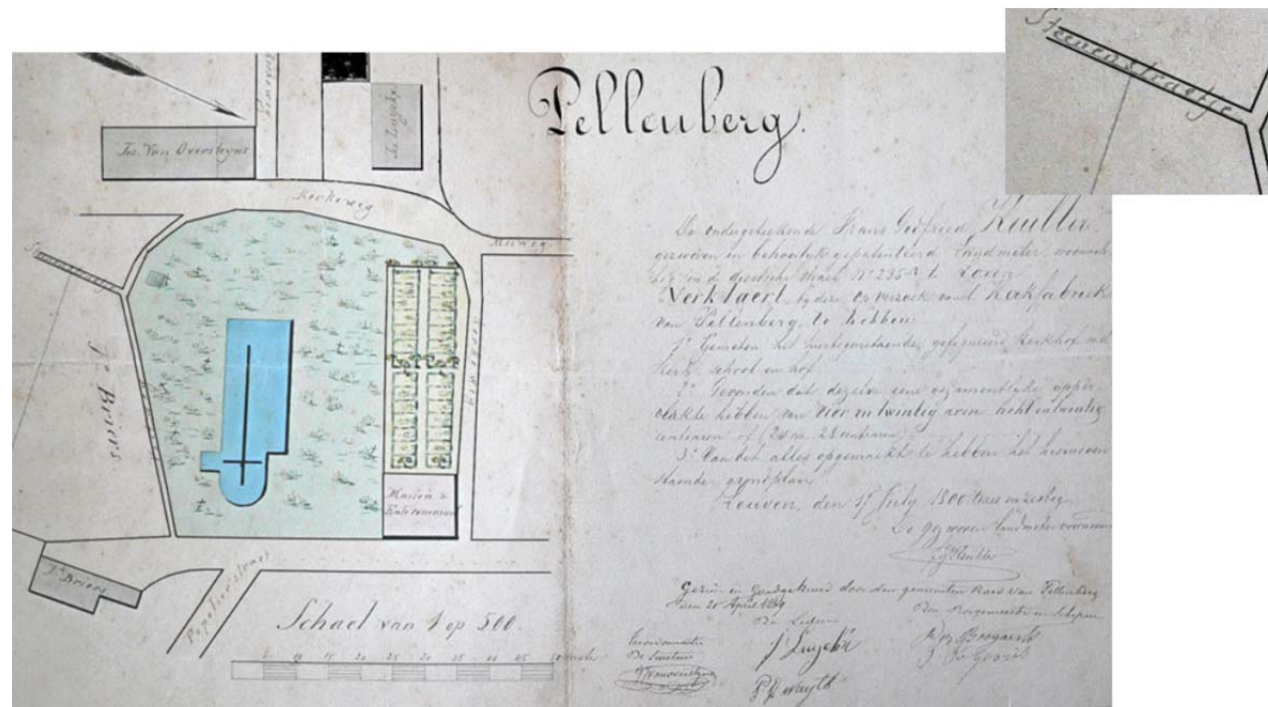 Pellenberg.
Steenenstraetje
Jos. Van Overstyns
Jos Luyckx
Kerkeweg
Meiweg
St
Jn Briers
Maison &
Ecole communal
Jn Briers
Popelierstraet
Schael van 1 op 500.
5 10 15 20 25 30 35 40 45 50 meters
De ondergeteekende Frans Godfried Keuller
gezworen en behoorlijk gepatenteerd Landmeter
de diestsche straet N° 235 Loven
Verklaert by deze, ten verzoek van 't Kerkfabriek
van Pellenberg, te hebben:
1° Gemeten het hierbovenstaende gefigureerd Kerkhof met
Kerk school en hof
2° Gevonden dat dezelve eene gezamentlyke opper
vlakte hebben van vier en twintig aren acht en twintig
centiaren of (24 a. 28 centiaren)
3° Van den alles opgemaekt te hebben het hierneven
staende grondplan
Leuven, den 17 July 1800
De gezworen Landmeter voornoemd
Gezien en Goedgekeurd door den gemeenten Raed van Pellenberg
den 20 April 1869
De Leden
Den Borgemeester en Schepen
De Secretaris
J Luyckx